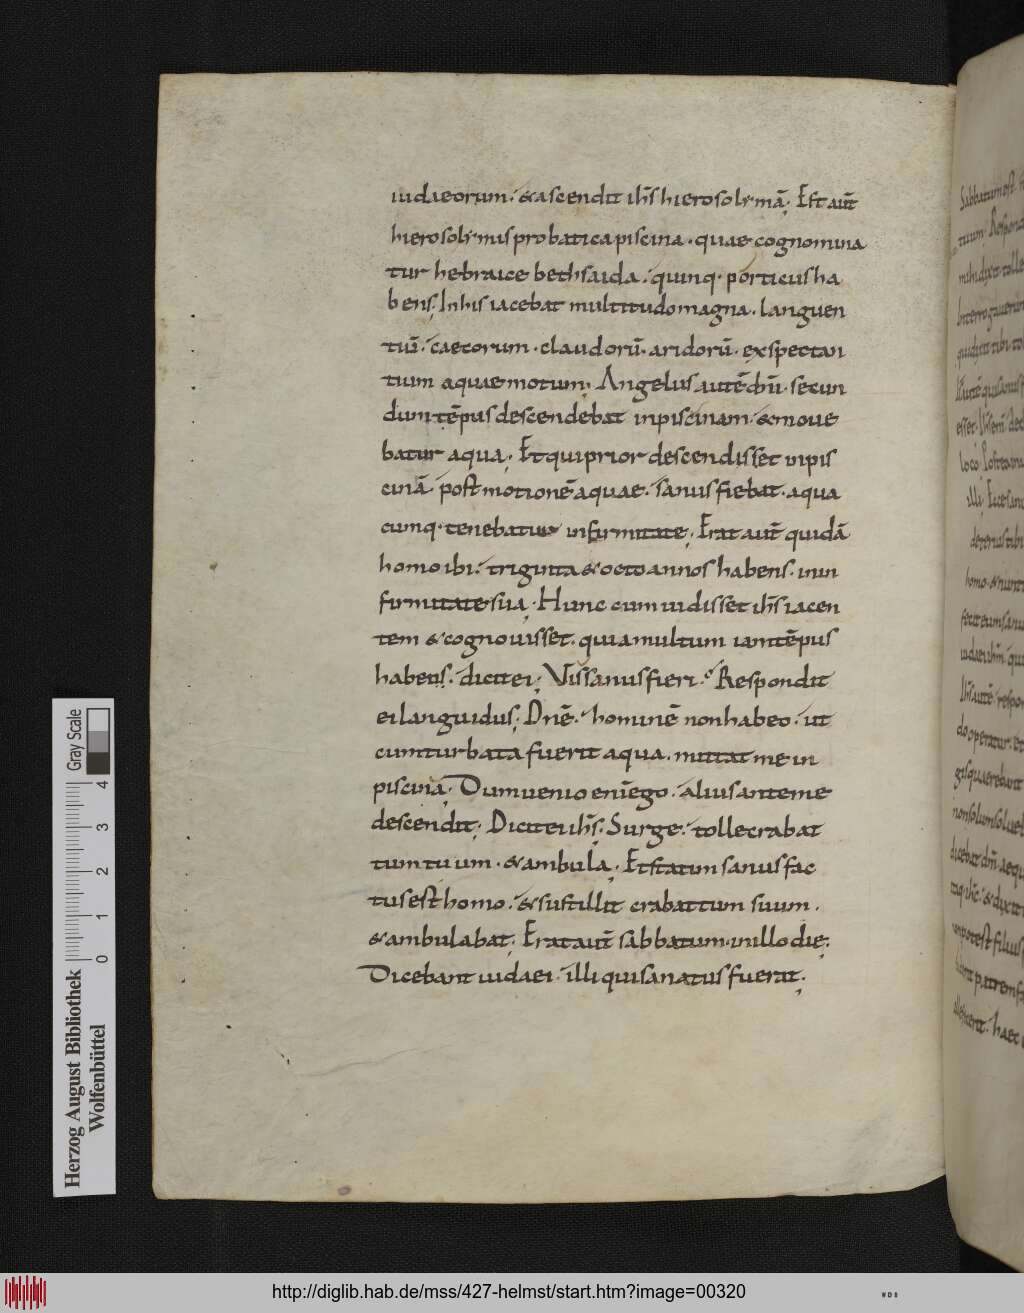 iudaeorum. & ascendit ih̄s hierosolymā. Est aut̄
hierosolymis probatica piscina. quae cognomina
tur hebraice bethsaida. quinq· porticus ha
bens. In his iacebat multitudo magna. languen
tiū. caecorum. claudorū. aridorū. exspectan
tium aquae motum. Angelus autē dn̄i. secun
dum tēpus descendebat in piscinam. & moue
batur aqua. Et qui prior descendisset in pis
cinā. post motionē aquae. sanus fiebat. a qua
cunq· tenebatur infirmitate. Erat aut̄ quidā
homo ibi. triginta & octo annos habens. in in
firmitate sua. Hunc cum uidisset ih̄s iacen
tem & cognouisset. quia multum iam tēpus
habens. dicit ei. Vis sanus fieri. Respondit
ei languidus. Dn̄e. hominē non habeo. ut
cum turbata fuerit aqua. mittat me in
piscinā. Dum uenio enī ego. alius ante me
descendit. Dicit ei ih̄s. Surge. tolle crabat
tum tuum. & ambula. Et statim sanus fac
tus est homo. & sustillit crabattum suum.
& ambulabat. Erat aut̄ sabbatum. in illo die.
Dicebant iudaei. illi qui sanatus fuerat.
Sabbatum est.
tuum. Respon
mihi dixit tolle
Interrogauerun
quis dixit tibi to
loco. Postea inu
illi. Ecce sanu
deterius tibi
homo. & nunti
fecit eum sanu
Gray Scale
0 1 2 3 4
Herzog August Bibliothek
Wolfenbüttel
http://diglib.hab.de/mss/427-helmst/start.htm?image=00320
WDB